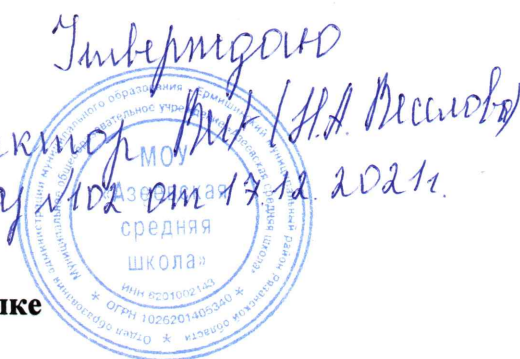 Утверждаю
ктор (Н.А. Веселова)
у №102 от 17.12.2021г.
МОУ
«Азеевская
средняя
школа»
ИНН 6201002143
* ОГРН 1026201405340 *
Отдел образования администрации муниципального образования - Ермишинский муниципальный район Рязанской области
Муниципальное общеобразовательное учреждение "Азеевская средняя школа"
ыке